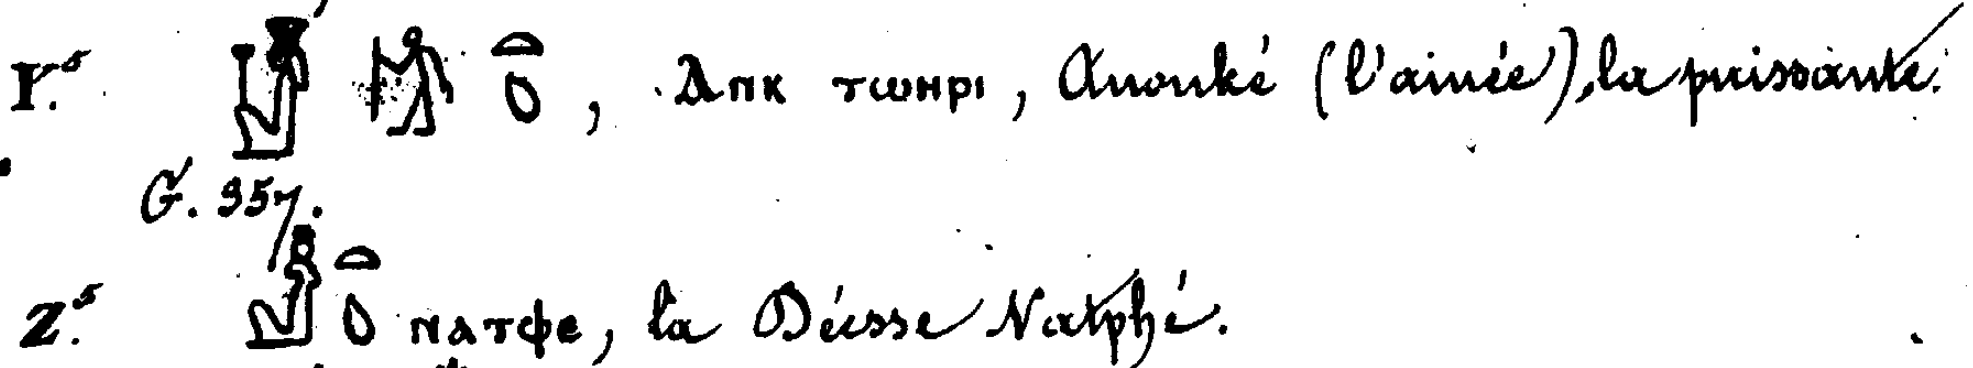 Y.⁵ , Ⲁⲡⲕ ⲧⲱⲏⲣⲓ, Anouké (l'ainée), la puissante.
G. 357.
Z.⁵ ⲛⲁⲧⲫⲉ, la Déesse Natphé.